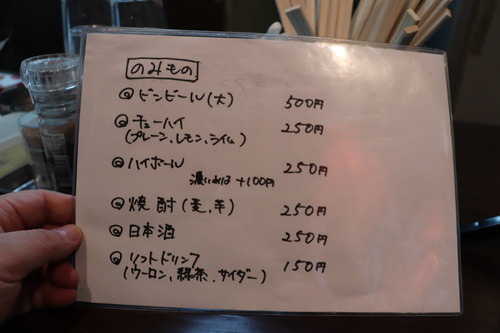 のみもの
◎ビンビール(大) 500円
◎チューハイ 250円
(プレーン、レモン、ライム)
◎ハイボール 250円
濃いめは +100円
◎焼酎(麦、芋) 250円
◎日本酒 250円
◎ソフトドリンク 150円
(ウーロン、緑茶、サイダー)